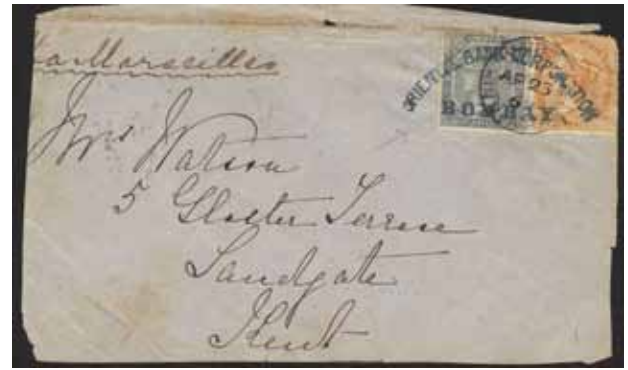 via Marseilles
ORIENTAL BANK CORPORATION
AP 25
BOMBAY
Mrs Watson
5 Gloster Terrace
Sandgate
Kent